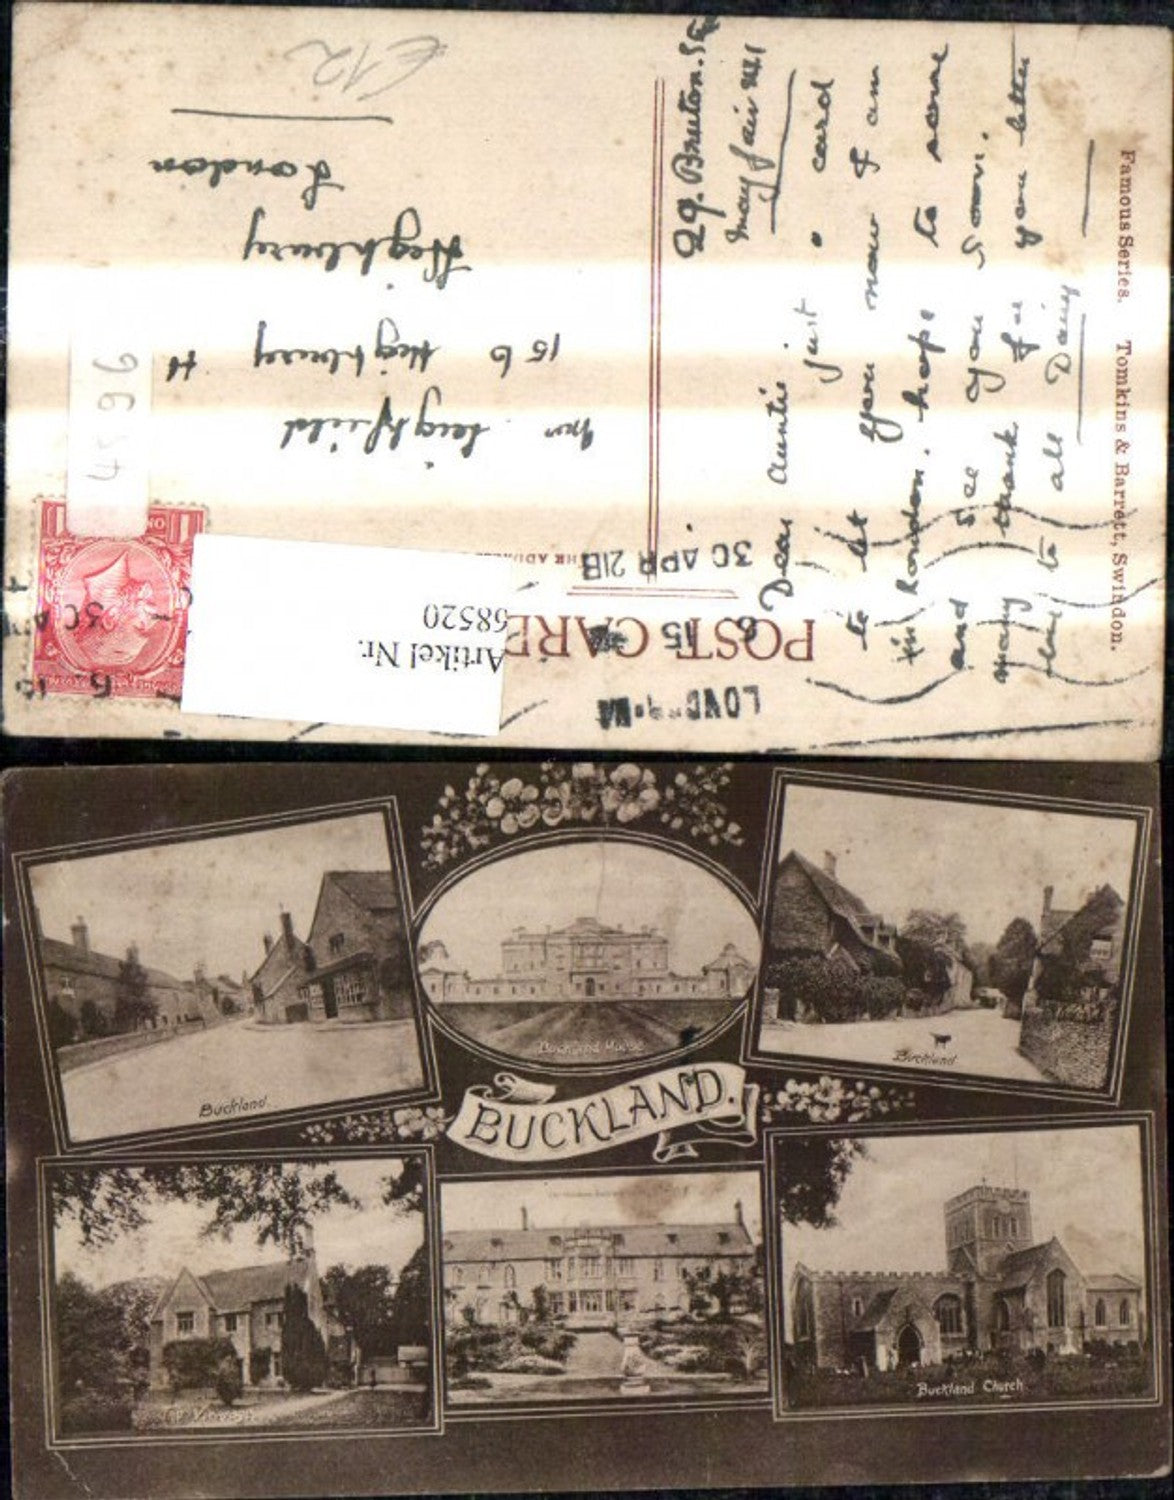 POST CARD
THE ADDRESS
Famous Series. Tomkins & Barrett, Swindon.
29. Bruton. St
May fair W1
Dear Auntie just a card
to let you now I am
in London. hope to come
and see you soon.
many thank for your letter
love to all Daisy
Mrs Leighfield
156 Highbury H
Highbury
London
£12
4596
Artikel Nr.
68520
LONDON. W1
6 15
30 APR 21B
BUCKLAND.
Buckland.
Buckland House
Buckland
Buckland Church